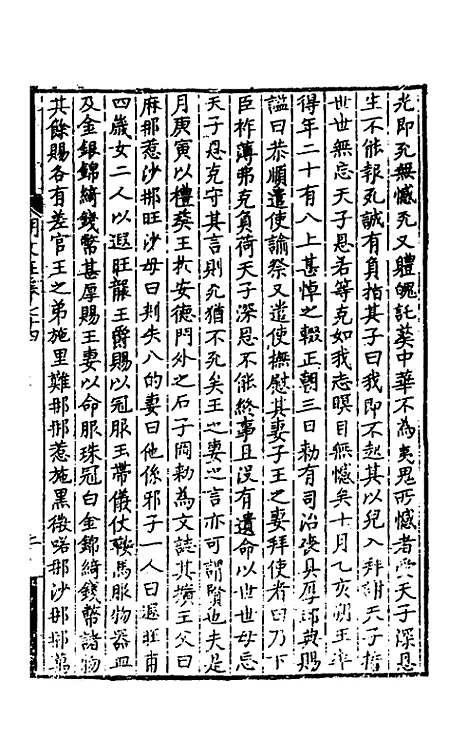 光即死無憾死又體魄託葬中華不為夷鬼所憾者受天子深恩
生不能報死誠有負指其子曰我即不起其以兒入拜謝天子誓
世世無忘天子恩若等克如我志瞑目無憾矣十月乙亥朔王卒
得年二十有八上甚悼之輟正朝三日勅有司治喪具厚賜
謚曰恭順遣使諭祭又遣使撫慰其妻子王之妻拜使者曰乃下
臣柞薄弗克負荷天子深恩不能終事且沒有遺命以世世毋忘
天子恩克守其言則死猶不死矣王之妻之言亦可謂賢也夫是
月庚寅以禮葬王於安德門外之石子岡勅為文誌其壙王父曰
麻那惹沙那旺沙母曰剌失八的妻曰他係邪子一人曰遐旺甫
四歲女二人以遐旺襲王爵賜以冠服玉帶儀仗鞍馬服物器皿
及金銀錦綺錢幣甚厚賜王妻以命服珠冠白金錦綺錢幣諸物
其餘賜各有差官王之弟施里難那那惹施黑微喏那沙那那萬
明文在卷七十四